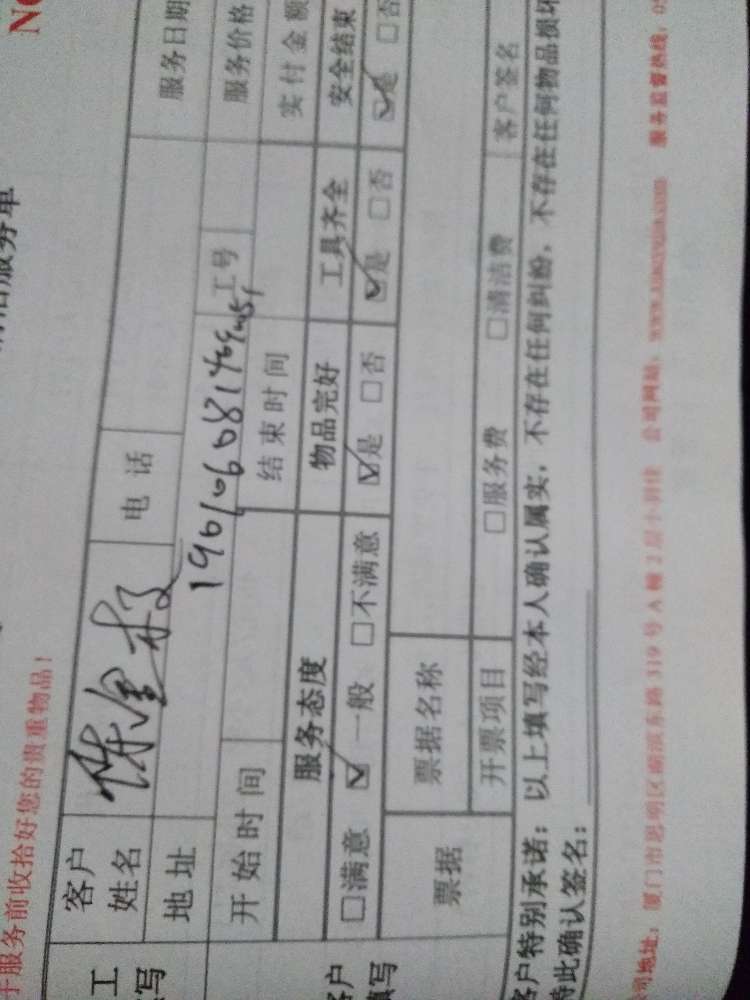 于服务前收拾好您的贵重物品！
清洁服务单
N
工
填写
客户
姓名
电话
服务日期
地址
19610608140
工号
服务价格
开始时间
结束时间
实付金额
客户
填写
服务态度
物品完好
工具齐全
安全结束
□满意 ☑一般 □不满意
☑是 □否
☑是 □否
☑是 □否
票据
票据名称
开票项目
□服务费 □清洁费
客户签名
客户特别承诺：以上填写经本人确认属实，不存在任何纠纷，不存在任何物品损坏
特此确认签名：
司地址：厦门市思明区湖滨东路 319 号 A 幢 2 层 公司网站：www. 服务监督热线：05